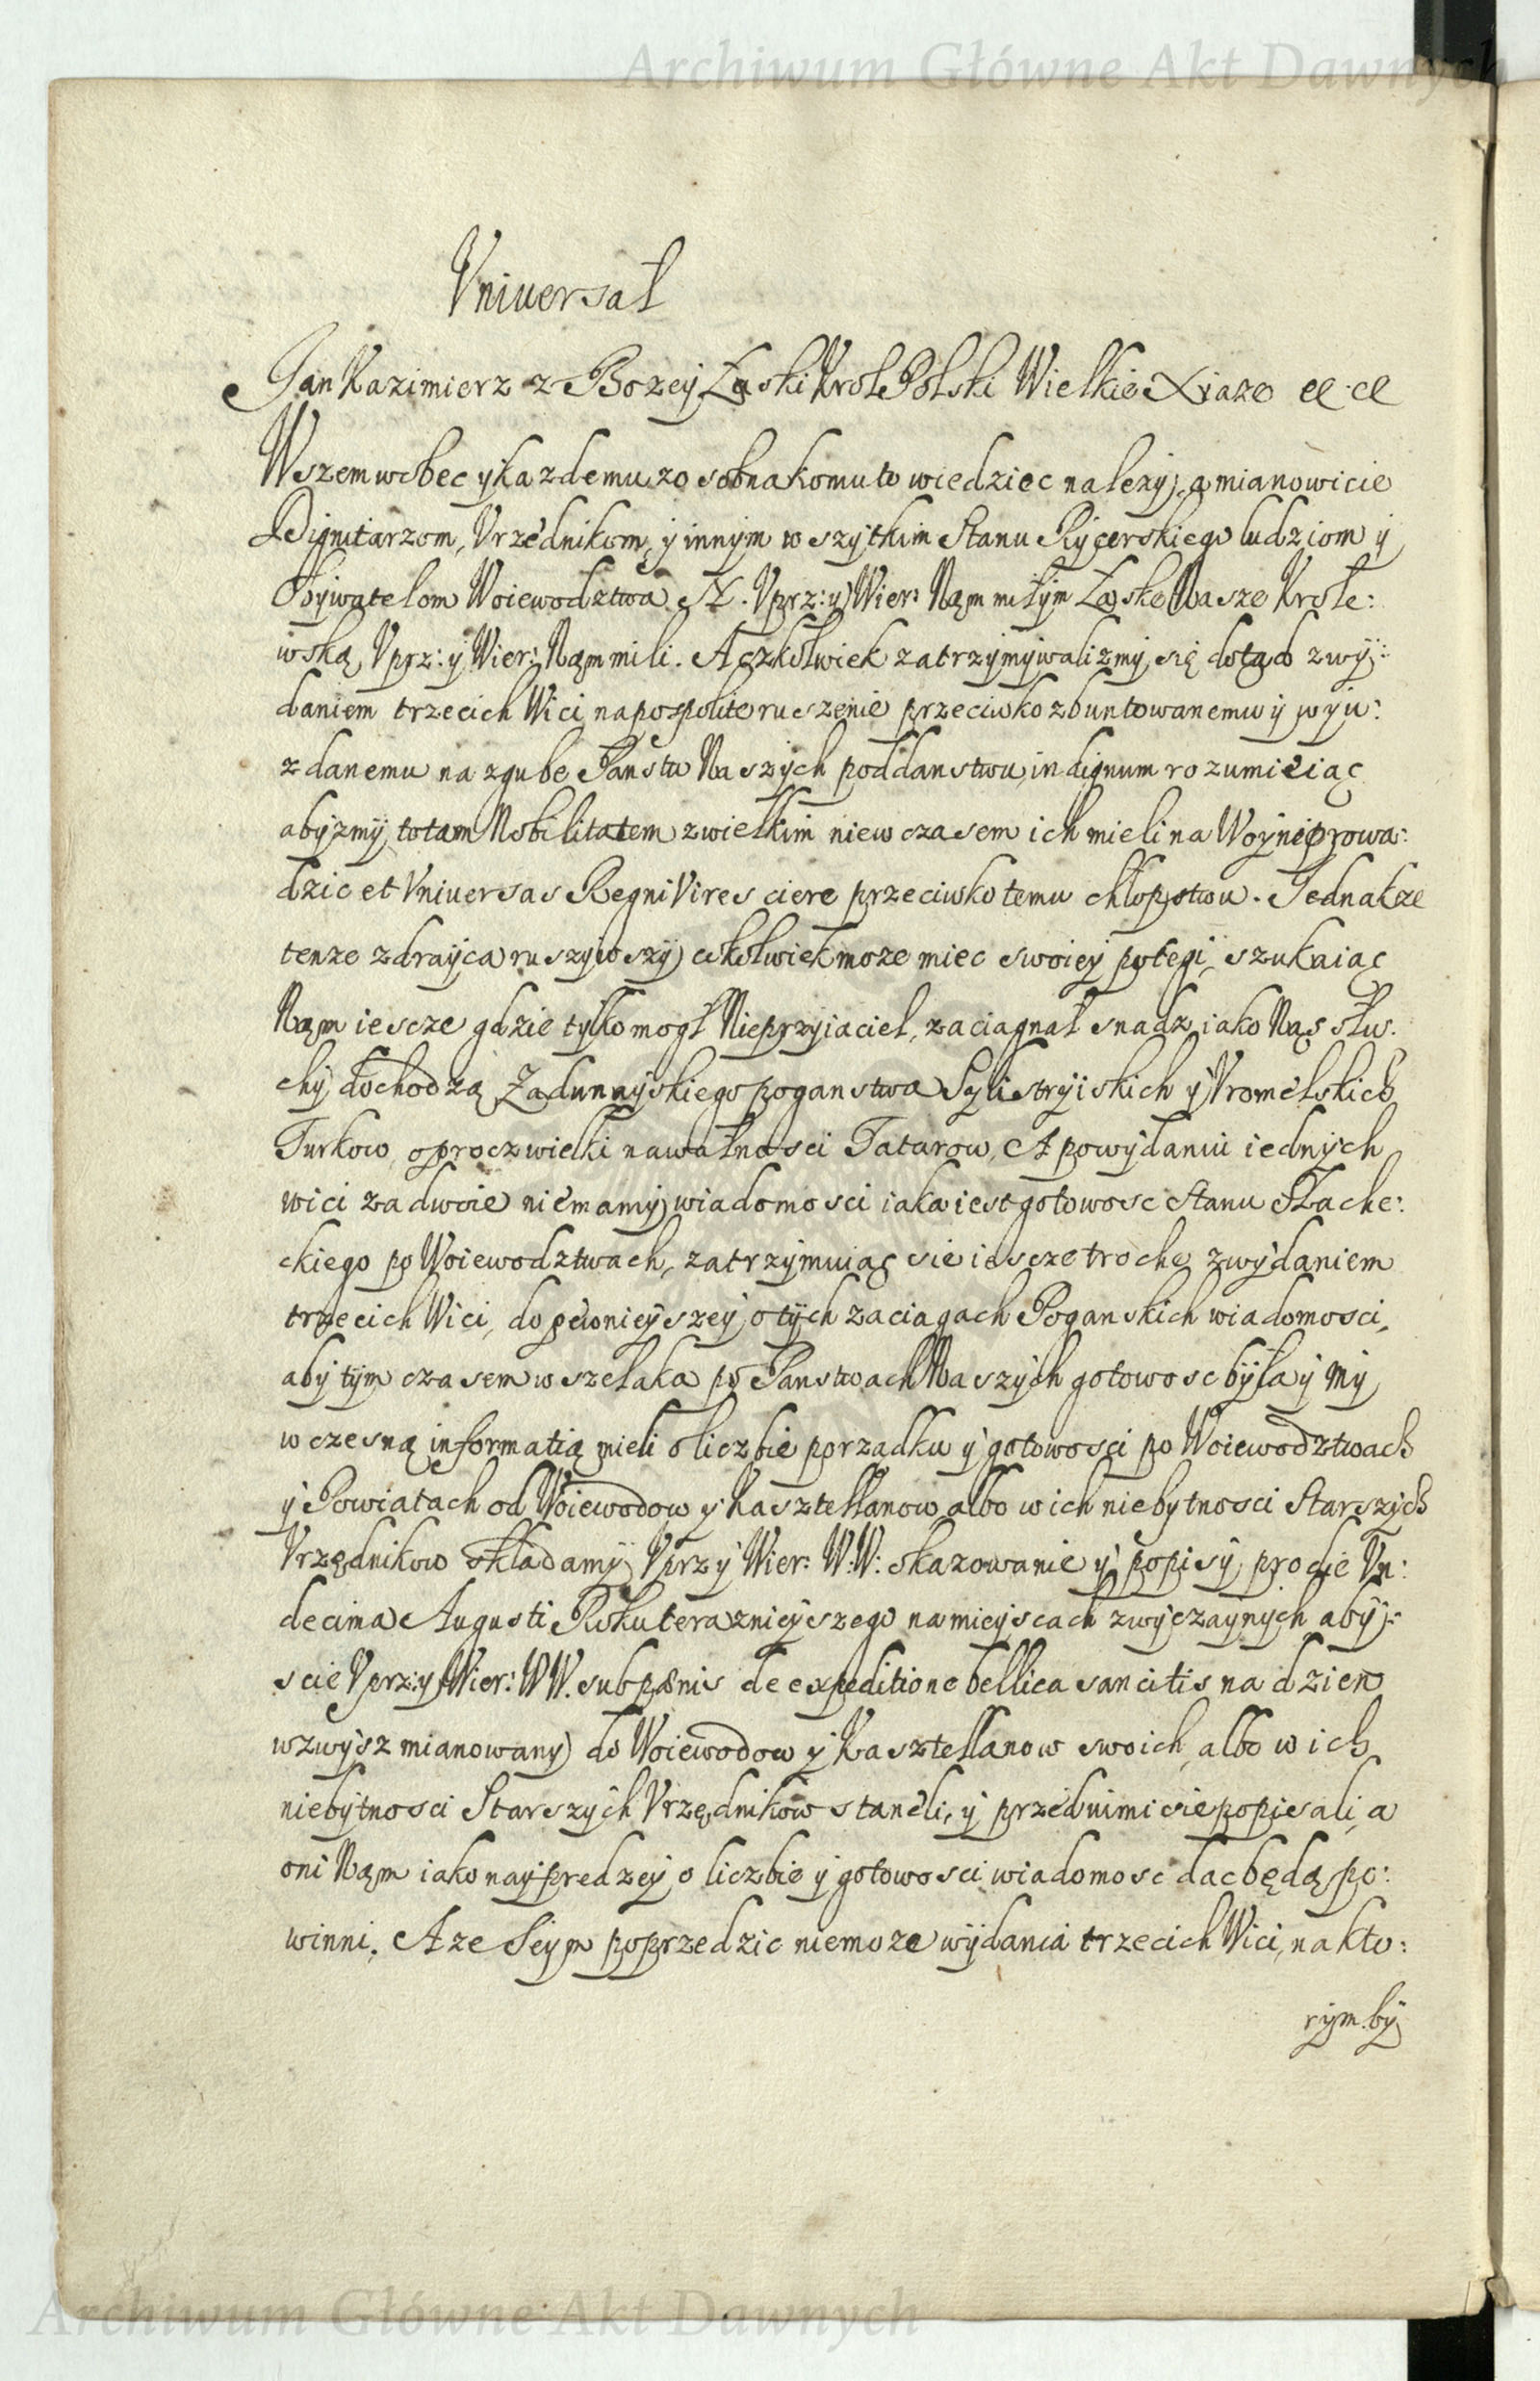 Archiwum Główne Akt Dawnych
Vniuersał
Jan Kazimierz z Bozey Łaski Krol Polski Wielkie Xiaze etc etc
Wszem wobec y kazdemu zosobna komu to wiedziec nalezy, a mianowicie
Dignitarzom, Vrzednikom, y innym wszytkim Stanu Rycerskiego ludziom y
Obywatelom Woiewodztwa N. Vprz: y Wier: Nam miłym Łaske Nasze Krole:
wską, Vprz: y Wier: Nam mili. Aczkolwiek zatrzymywalizmy się dotąd z wy:
daniem trzecich Wici na pospolite ruszenie przeciwko zbuntowanemu y wyu:
zdanemu na zgube Panstw Naszych poddanstwu, indignum rozumieiąc
abyzmy totam Nobilitatem z wielkim niewczasem ich mieli na Woyne prowa:
dzic et Vniuersas Regni Vires ciere przeciwko temu chłopstwu. Jednakze
tenze zdrayca ruszywszy cokolwiek moze miec swoiey potegi, szukaiąc
Nam iescze gdzie tylko mogł Nieprzyiaciel, zaciagnał snadz iako Nas słu:
chy dochodzą Zadunayskiego poganstwa Sylistryiskich y Vromelskich
Turkow, oprocz wielki nawałnosci Tatarow. A po wydaniu iednych
wici za dwoie nie mamy wiadomosci iaka iest gotowosc Stanu Szlache:
ckiego po Woiewodztwach, zatrzymuiąc sie iescze troche z wydaniem
trzecich Wici, do pewnieyszey o tych zaciagach Poganskich wiadomosci,
aby tym czasem wszelaka po Panstwach Naszych gotowosc była y My
wczesną informatią mieli o liczbie porzadku y gotowosci po Woiewodztwach
y Powiatach od Woiewodow y Kasztellanow albo w ich niebytnosci Starszych
Vrzędnikow składamy Vprz y Wier: W.W: okazowanie y popisy pro die Vn:
decima Augusti Roku teraznieyszego na mieyscach zwyczaynych aby:
scie Vprz: y Wier: WW. sub pænis de expeditione bellica sancitis na dzien
wzwysz mianowany do Woiewodow y Kasztellanow swoich, albo w ich
niebytnosci Starszych Vrzędnikow staneli, y przed nimi sie popisali, a
oni Nam iako nayprędzey o liczbie y gotowosci wiadomosc dac będą po:
winni. A ze Seym poprzedzic niemoze wydania trzecich Wici, na kto:
rym by
Archiwum Główne Akt Dawnych